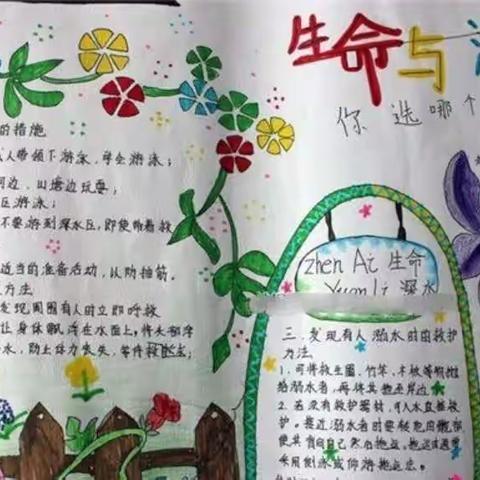 生命与
你选哪个
的措施
人带领下游泳,学会游泳;
边玩耍;
区游泳;
不要游到深水区,即使带着救
适当的准备活动,以防抽筋。
方法
发现周围有人时立即呼救
让身体飘浮在水面上,将头部浮
水,防止体力丧失,等待救援;
zhen Ai 生命
Yuan Li 深水
三、发现有人溺水时的救护
方法
1、可将救生圈、竹竿、木板等物抛
给溺水者,再将其拖至岸边;
2、若没有救护器材,可入水直接救
护。接近溺水者时要
使其背向自己然后拖运。拖运时通常
采用侧泳或仰泳拖运法。